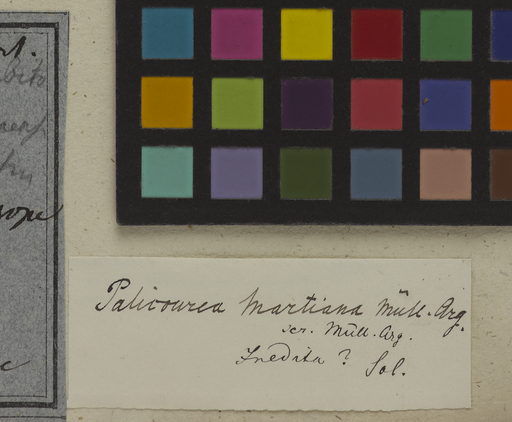 Palicourea Martiana Müll. Arg.
scr. Müll. Arg.
Inedita ? Sol.